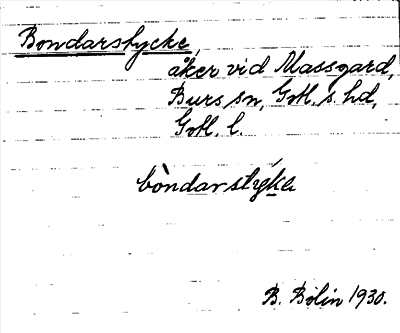 Bondarstycke,
åker vid Massgard,
Burs sn, Gotl. s. hd,
Gotl. l.
bòndarstyka
B. Bolin 1930.